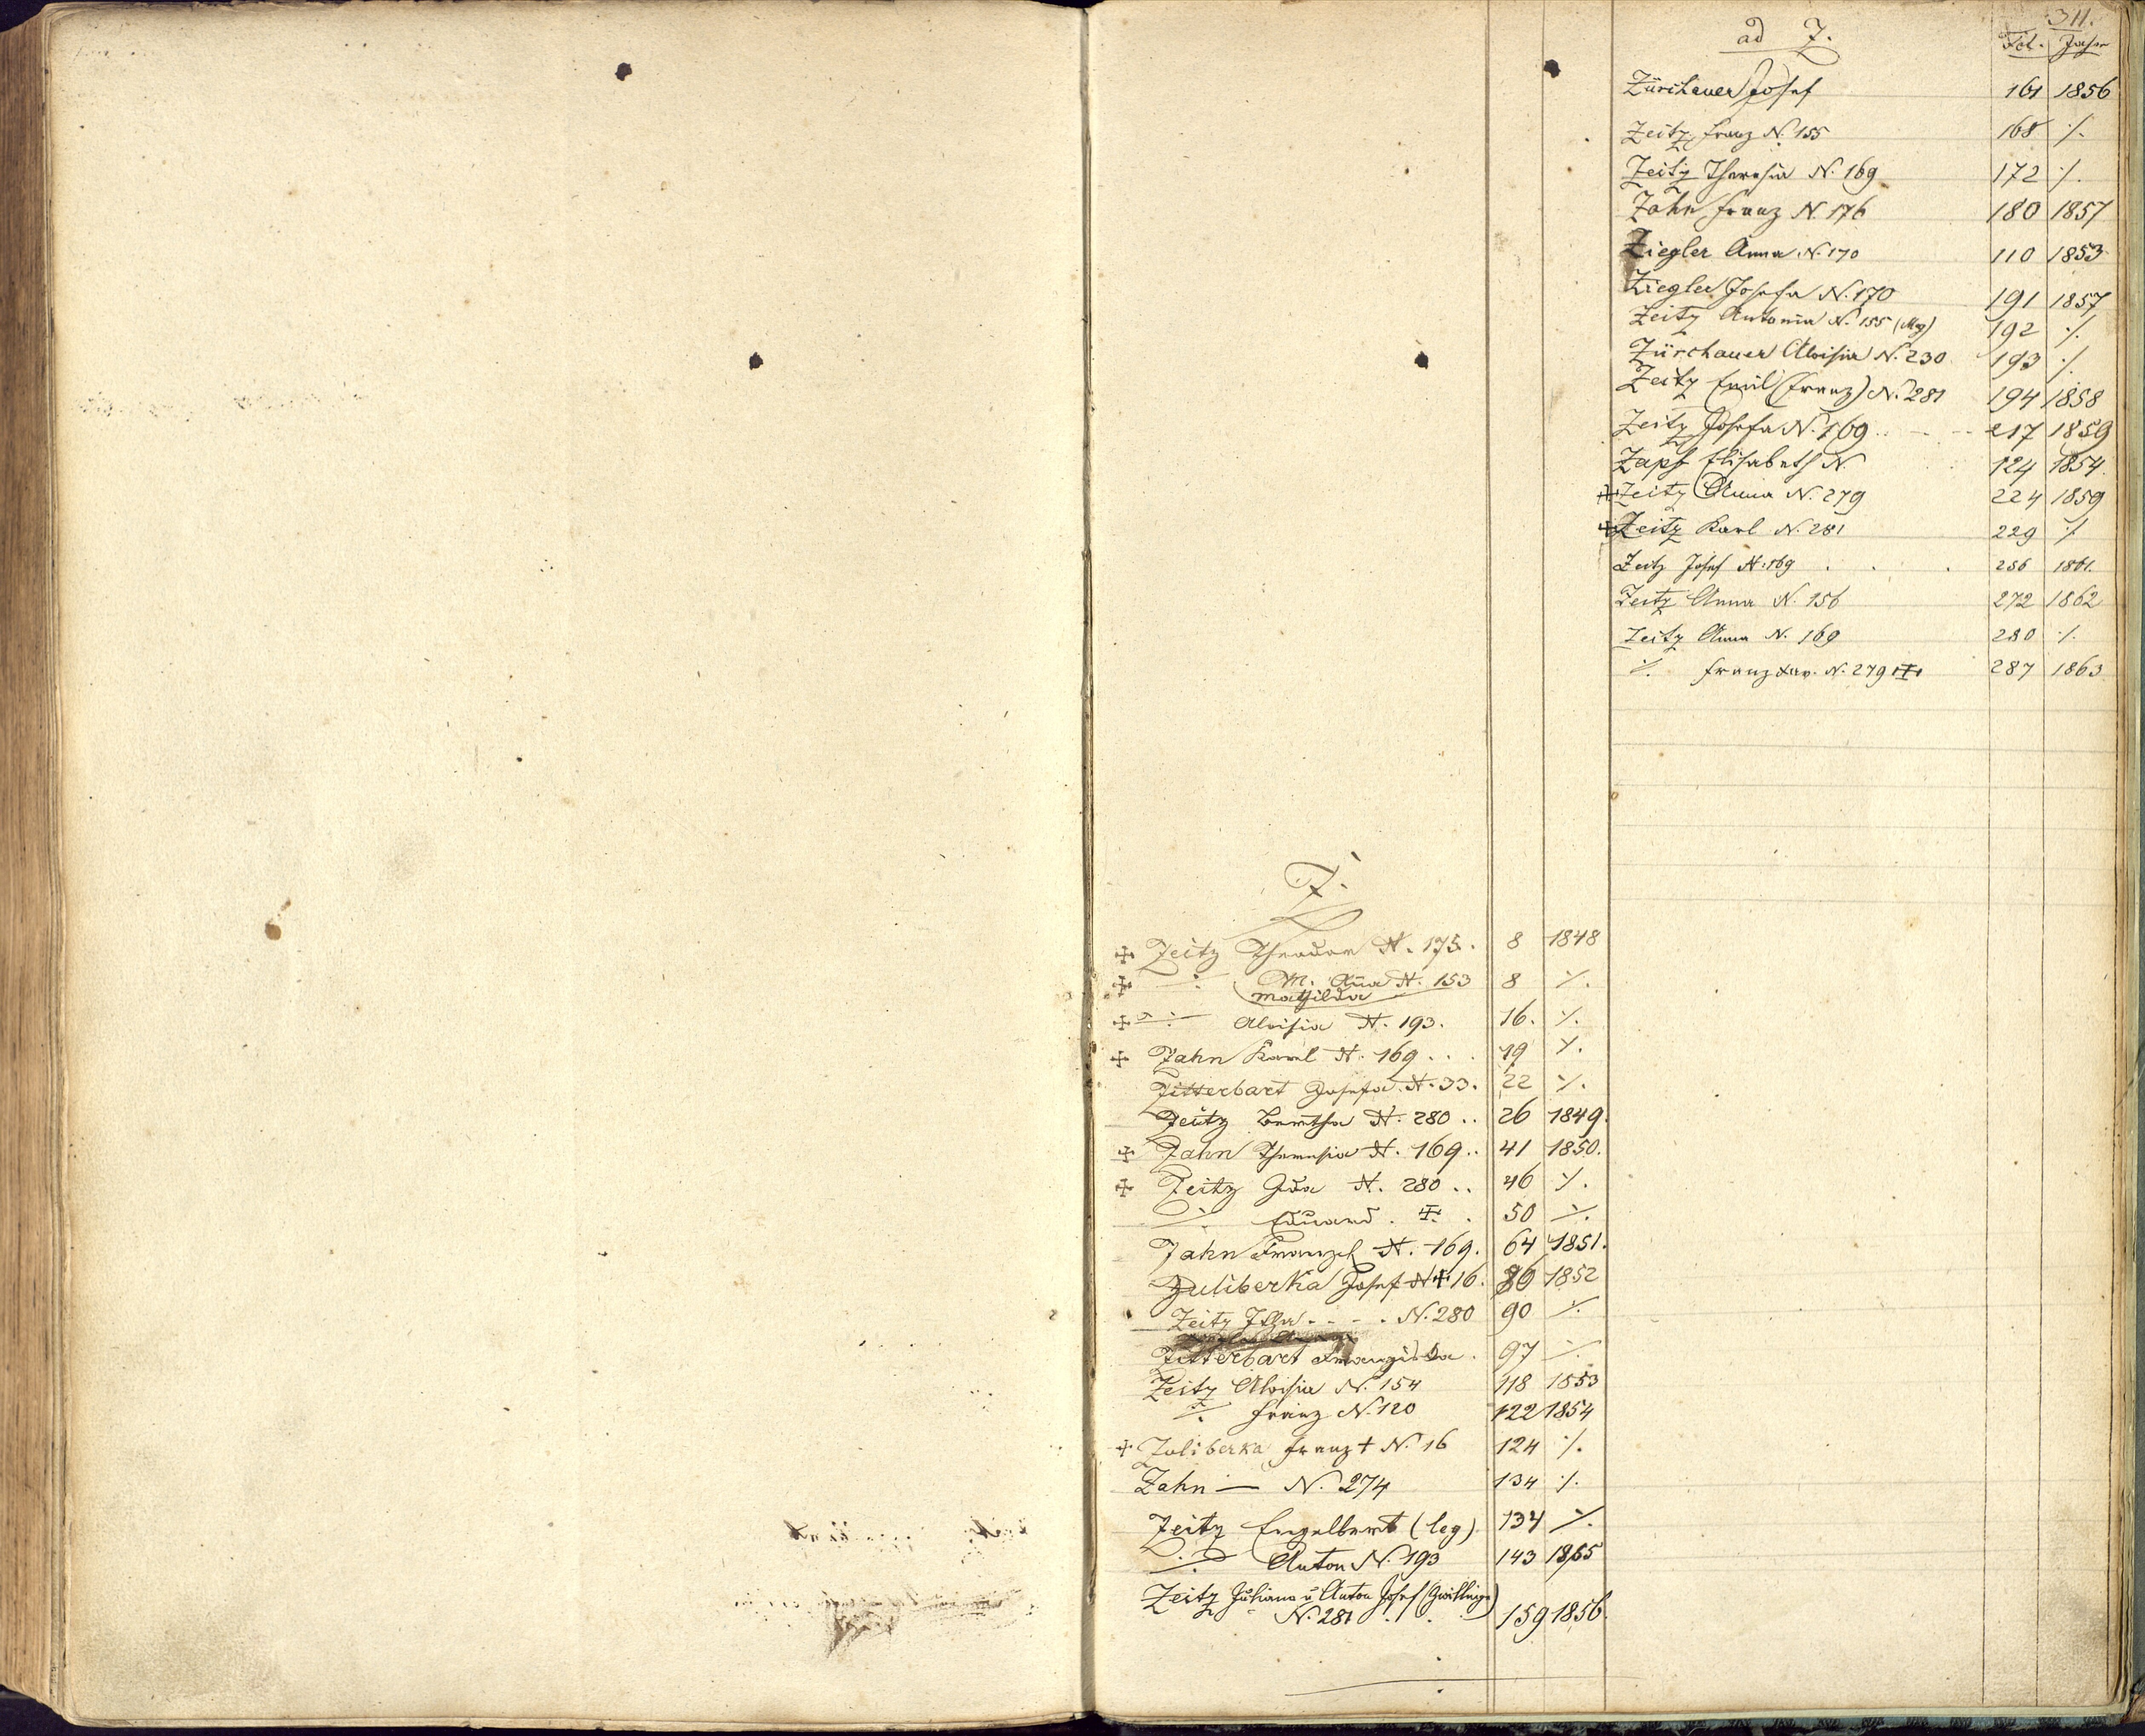 Z.
Zeitz Theodor N. 175. 8 1848
./. M. Anna N. 153 8 ./.
Mathilda
./. Aloisia N. 193. 16. ./.
Zahn Karl N. 169 . . . 19 ./.
Zitterbart Josefa N. 33. 22 ./.
Zeitz Bertha N. 280 . . 26 1849.
Zahn Theresia N. 169 . . 41 1850.
Zeitz Ida N. 280 . . 46 ./.
./. Eduard . . 50 ./.
Zahn N. 169. 64 1851.
Zuliberka Josef N 16. 86 1852
Zeitz - - - . N. 280 90 ./.
Zitterbart Franziska . 97 ./.
Zeitz Aloisia N. 154 118 1853
./. Franz N. 120 122 1854
Zoliberka Franz + N. 16 124 ./.
Zahn — N. 274 134 ./.
Zeitz Engelbert (leg) 134 ./.
./. Anton N. 193 143 1855
Zeitz Juliana u Anton Josef (Zwillinge)
N. 281 . . . 159 1856.
311.
ad Z. Fol. Jahr
Zürchauer Josef 161 1856
Zeitz Franz N. 155 168 ./.
Zeitz Theresia N. 169 172 ./.
Zahn Franz N. 176 180 1857
Ziegler Anna N. 170 110 1853
Ziegler Josefa N. 170 191 1857
Zeitz Antonia N. 155 192 ./.
Zürchauer Aloisia N. 230 193 ./.
Zeitz Emil (Franz) N. 281 194 1858
Zeitz Josefa N. 169 . . - - - 217 1859
Zapf Elisabeth N 124 1854.
Zeitz Anna N. 279 224 1859
Zeitz Karl N. 281 229 ./.
Zeitz Josef N. 169 . . . 256 1861.
Zeitz Anna N. 156 272 1862
Zeitz Anna N. 169 280 ./.
./. Franz Xav. N. 279 287 1863